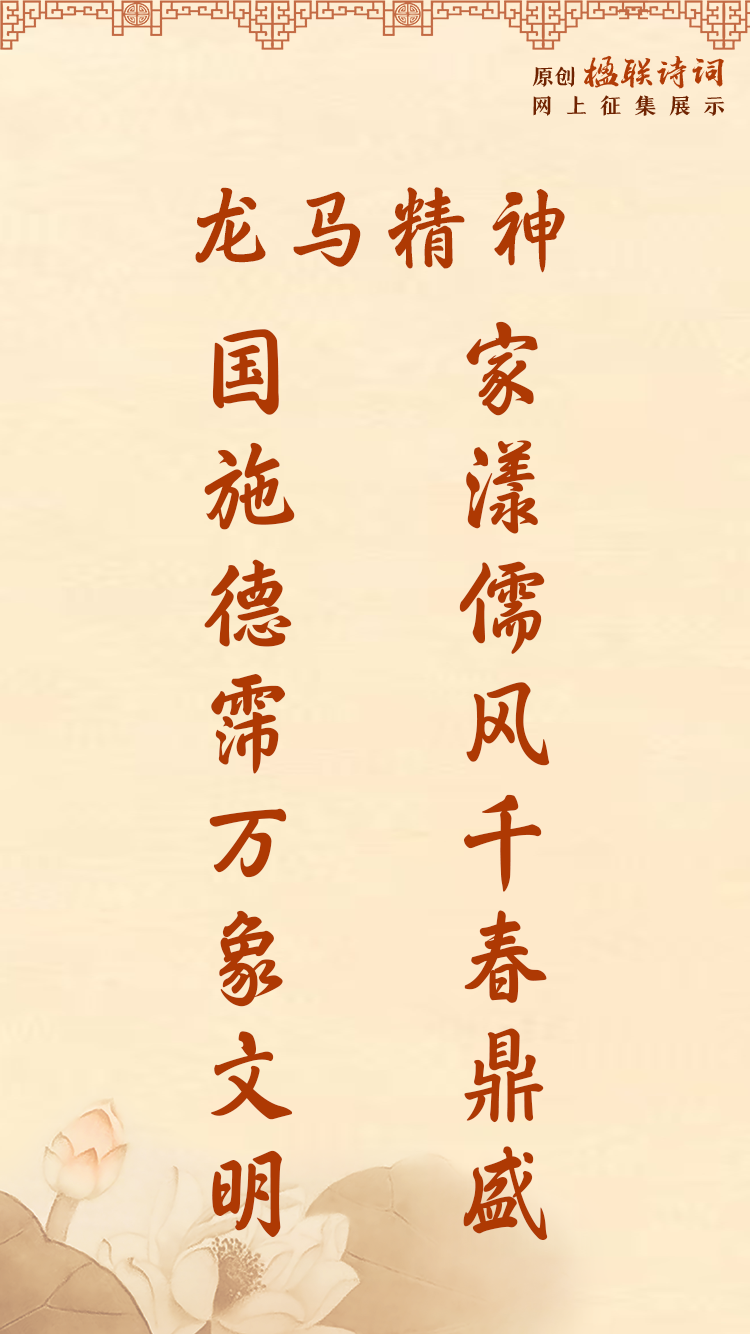 原创楹联诗词
网上征集展示
龙马精神
家漾儒风千春鼎盛
国施德霈万象文明